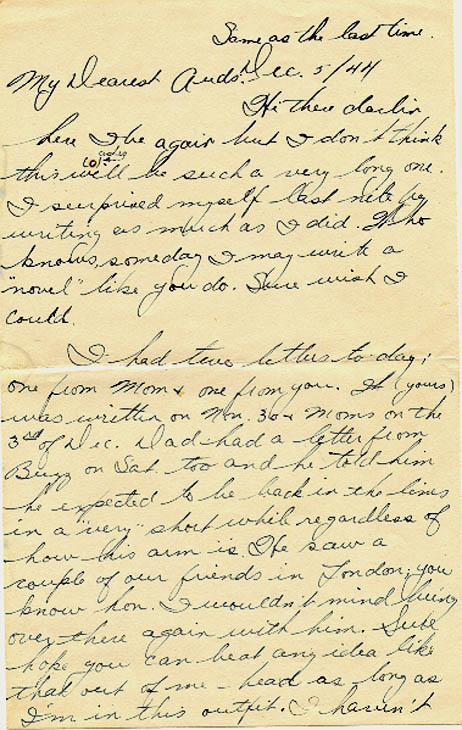 Same as the last time.
Dec. 5/44
My Dearest Auds.
Hi there darlin
here I be again but I don't think
this will be such a very long one.
I surprised myself last nite by
writing as much as I did. Who
knows, someday I may write a
"novel" like you do. Sure wish I
could.
I had two letters to-day;
one from Mom & one from you. It (yours)
was written on Nov. 30 & Moms on the
3rd of Dec. Dad had a letter from
on Sat. too and he told him
he expected to be back in the lines
in a "very" short while regardless of
how his arm is. He saw a
couple of our friends in London; you
know hon. I wouldn't mind being
over there again with him. Sure
hope you can beat any idea like
that out of me - head as long as
I'm in this outfit. I haven't